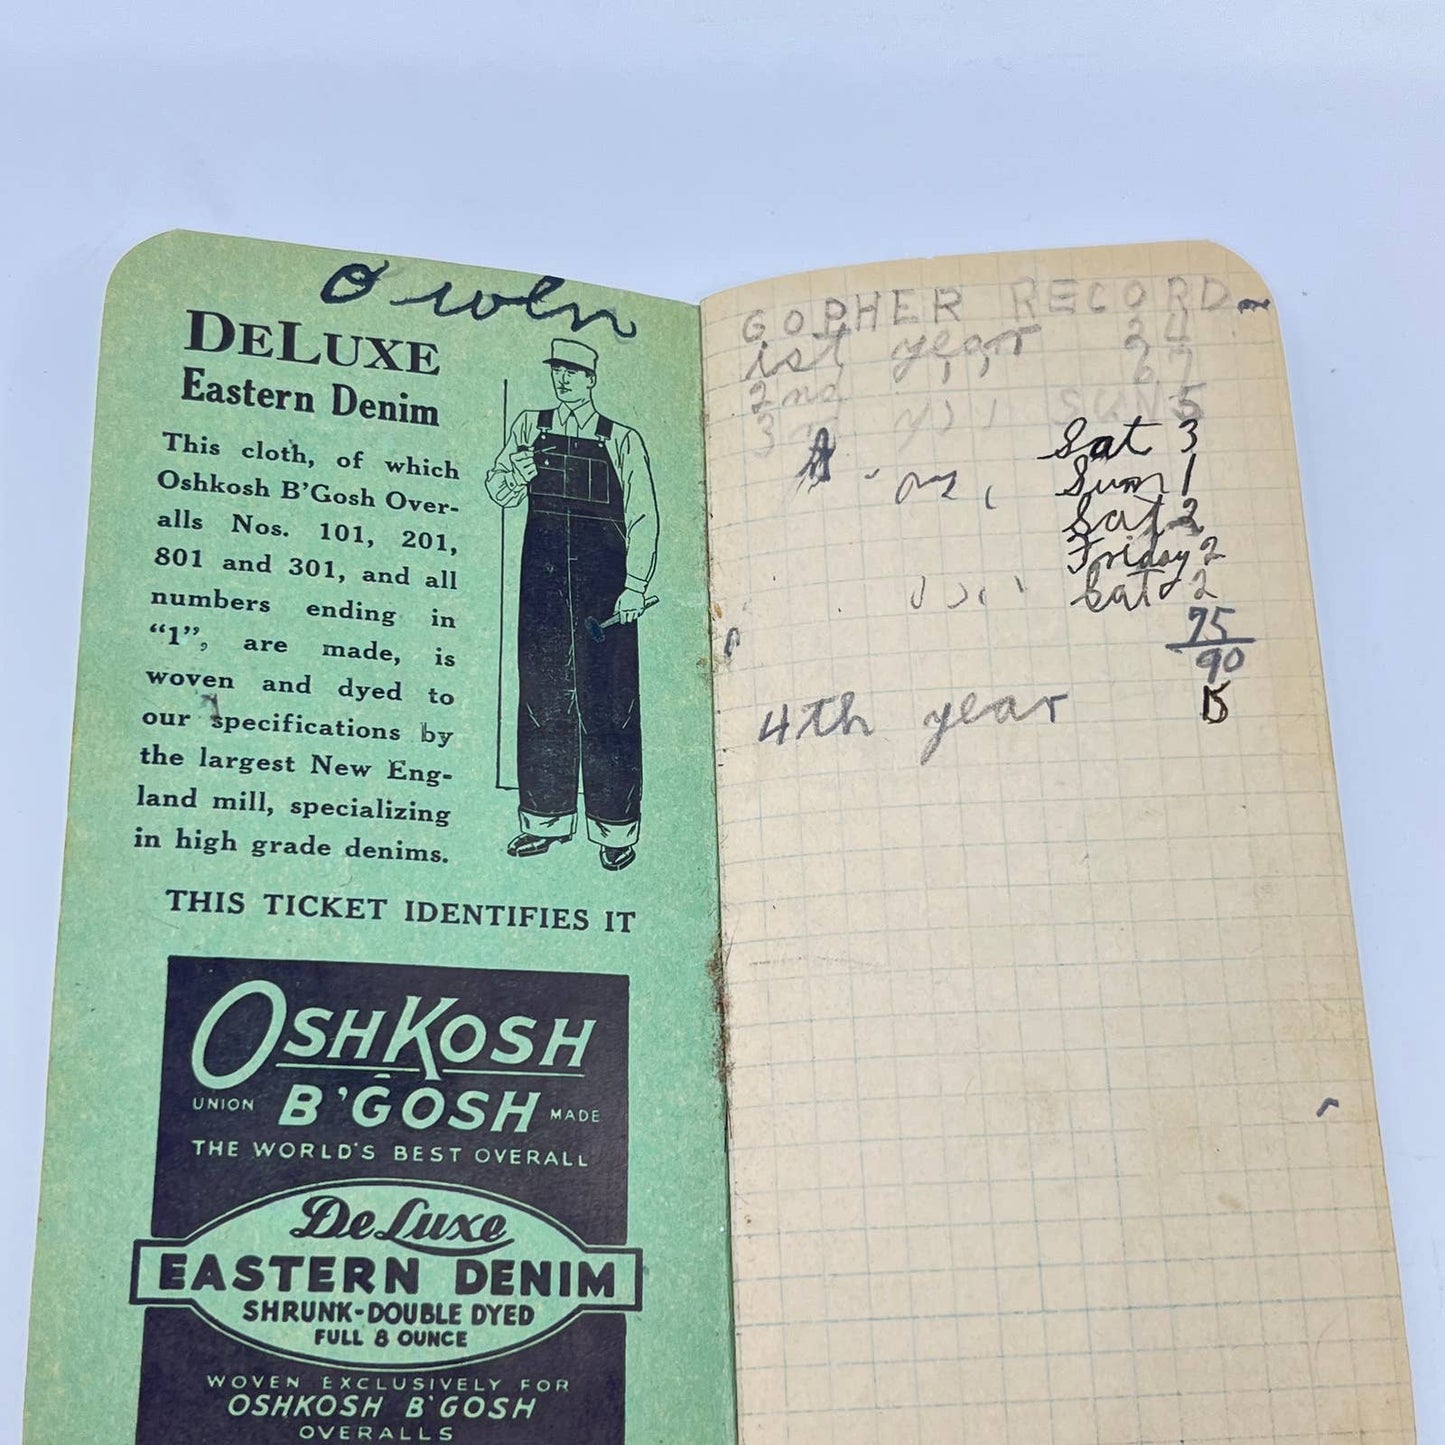 Owen
DELUXE
Eastern Denim
This cloth, of which
Oshkosh B'Gosh Over-
alls Nos. 101, 201,
801 and 301, and all
numbers ending in
"1", are made, is
woven and dyed to
our specifications by
the largest New Eng-
land mill, specializing
in high grade denims.
THIS TICKET IDENTIFIES IT
OSHKOSH
UNION B'GOSH MADE
THE WORLD'S BEST OVERALL
DeLuxe
EASTERN DENIM
SHRUNK-DOUBLE DYED
FULL 8 OUNCE
WOVEN EXCLUSIVELY FOR
OSHKOSH B'GOSH
OVERALLS
GOPHER RECORD
1st year 24
2nd ,, 67
3rd SUN 5
Sat 3
Sun 1
Sat 2
Friday 2
Sat 2
75
90
4th year